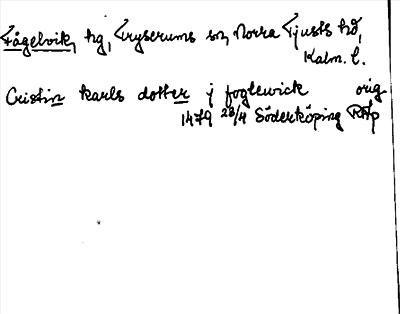 Fågelvik, hg, Fryserums sn, Norra Tjusts hd,
Kalm. l.
Cristin karls dotter j foglewick orig
1479 28/4 Söderköping RAp